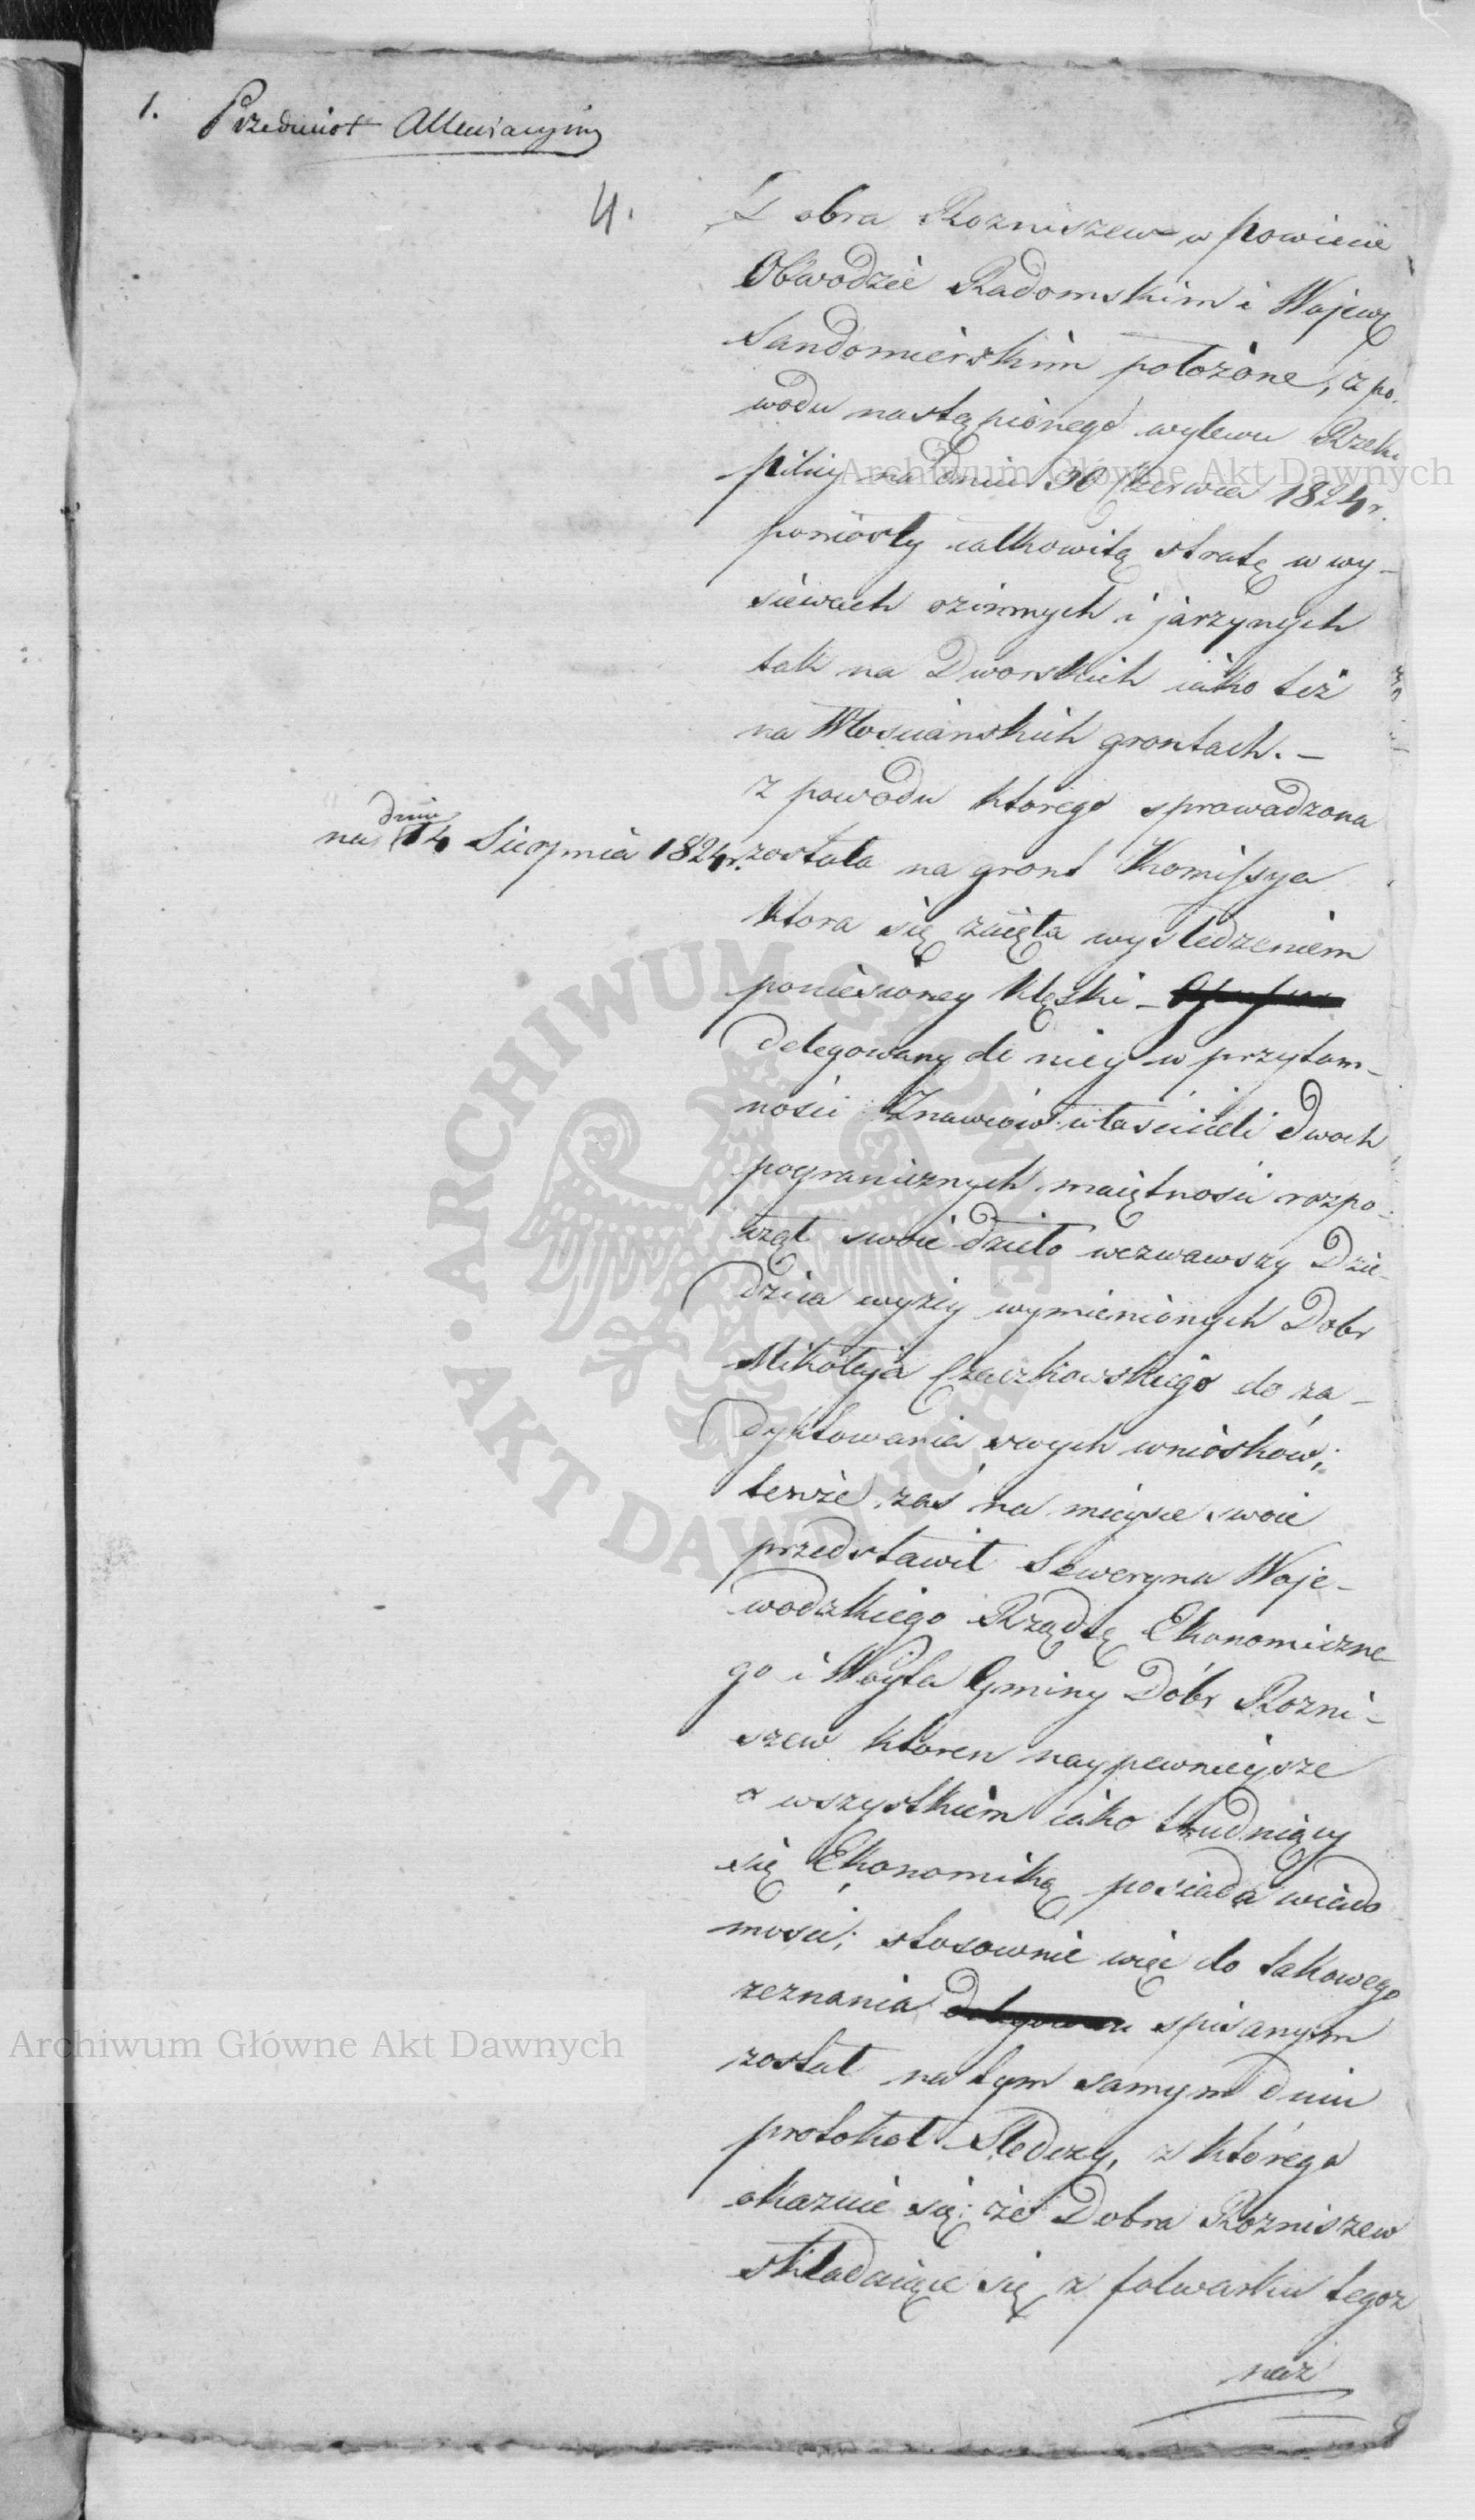 1. Przedmiot Allewiacyiny
4.
Dobra Rozniszew w Powiecie
Obwodzie Radomskim i Wojew
Sandomierskim położone, z po-
wodu nastąpionego wylewu Rzeki
Pilicy na dniu 30 Czerwca 1824 r.
poniosły całkowitą stratę w wy-
siewach ozimnych i jarzynych
tak na Dworskich iako też
na Włosciańskich grontach. –
z powodu którego sprowadzona
na dniu 14 Sierpnia 1824 r. została na gront Kommissya
ktora się zaięła wysledzeniem
poniesioney klęski –
delegowany do niey w przytom-
nosci Znawców właścicieli dwoch
pogranicznych maiętnosci rozpo-
czął swoie dzieło wezwawszy Dzie-
dzica wyżey wymienionych Dobr
Mikołaja Czaczkowskiego do za-
dyktowania swych wniosków,
tenże zaś na mieysce swoie
przedstawił Seweryna Woje-
wodzkiego Rządcę Ekonomiczne-
go i Woyta Gminy Dóbr Rozni-
szew ktoren naypewnieysze
o wszystkiem iako trudniący
się Ekonomiką posiada wiado
mosci; stosownie więc do takowego
zeznania spisanym
został na tym samym dniu
protokoł Sledczy, z którego
okazuie się: że Dobra Rozniszew
składaiące się z folwarku tegoz
naz
Archiwum Główne Akt Dawnych
Archiwum Główne Akt Dawnych
ARCHIWUM GŁÓWNE • AKT DAWNYCH •